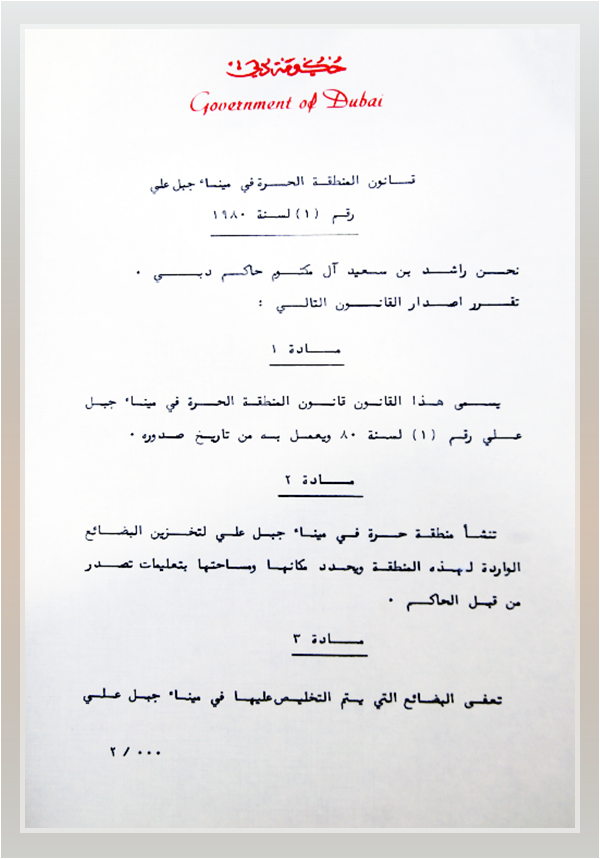 حكومة دبي
Government of Dubai
قانون المنطقة الحرة في ميناء جبل علي
رقم (١) لسنة ١٩٨٠
نحن راشد بن سعيد آل مكتوم حاكم دبي .
تقرر اصدار القانون التالي :
مادة ١
يسمى هذا القانون قانون المنطقة الحرة في ميناء جبل
علي رقم (١) لسنة ٨٠ ويعمل به من تاريخ صدوره .
مادة ٢
تنشأ منطقة حرة في ميناء جبل علي لتخزين البضائع
الواردة لهذه المنطقة ويحدد مكانها ومساحتها بتعليمات تصدر
من قبل الحاكم .
مادة ٣
تعفى البضائع التي يتم التخليص عليها في ميناء جبل علي
٢ / ٠٠٠